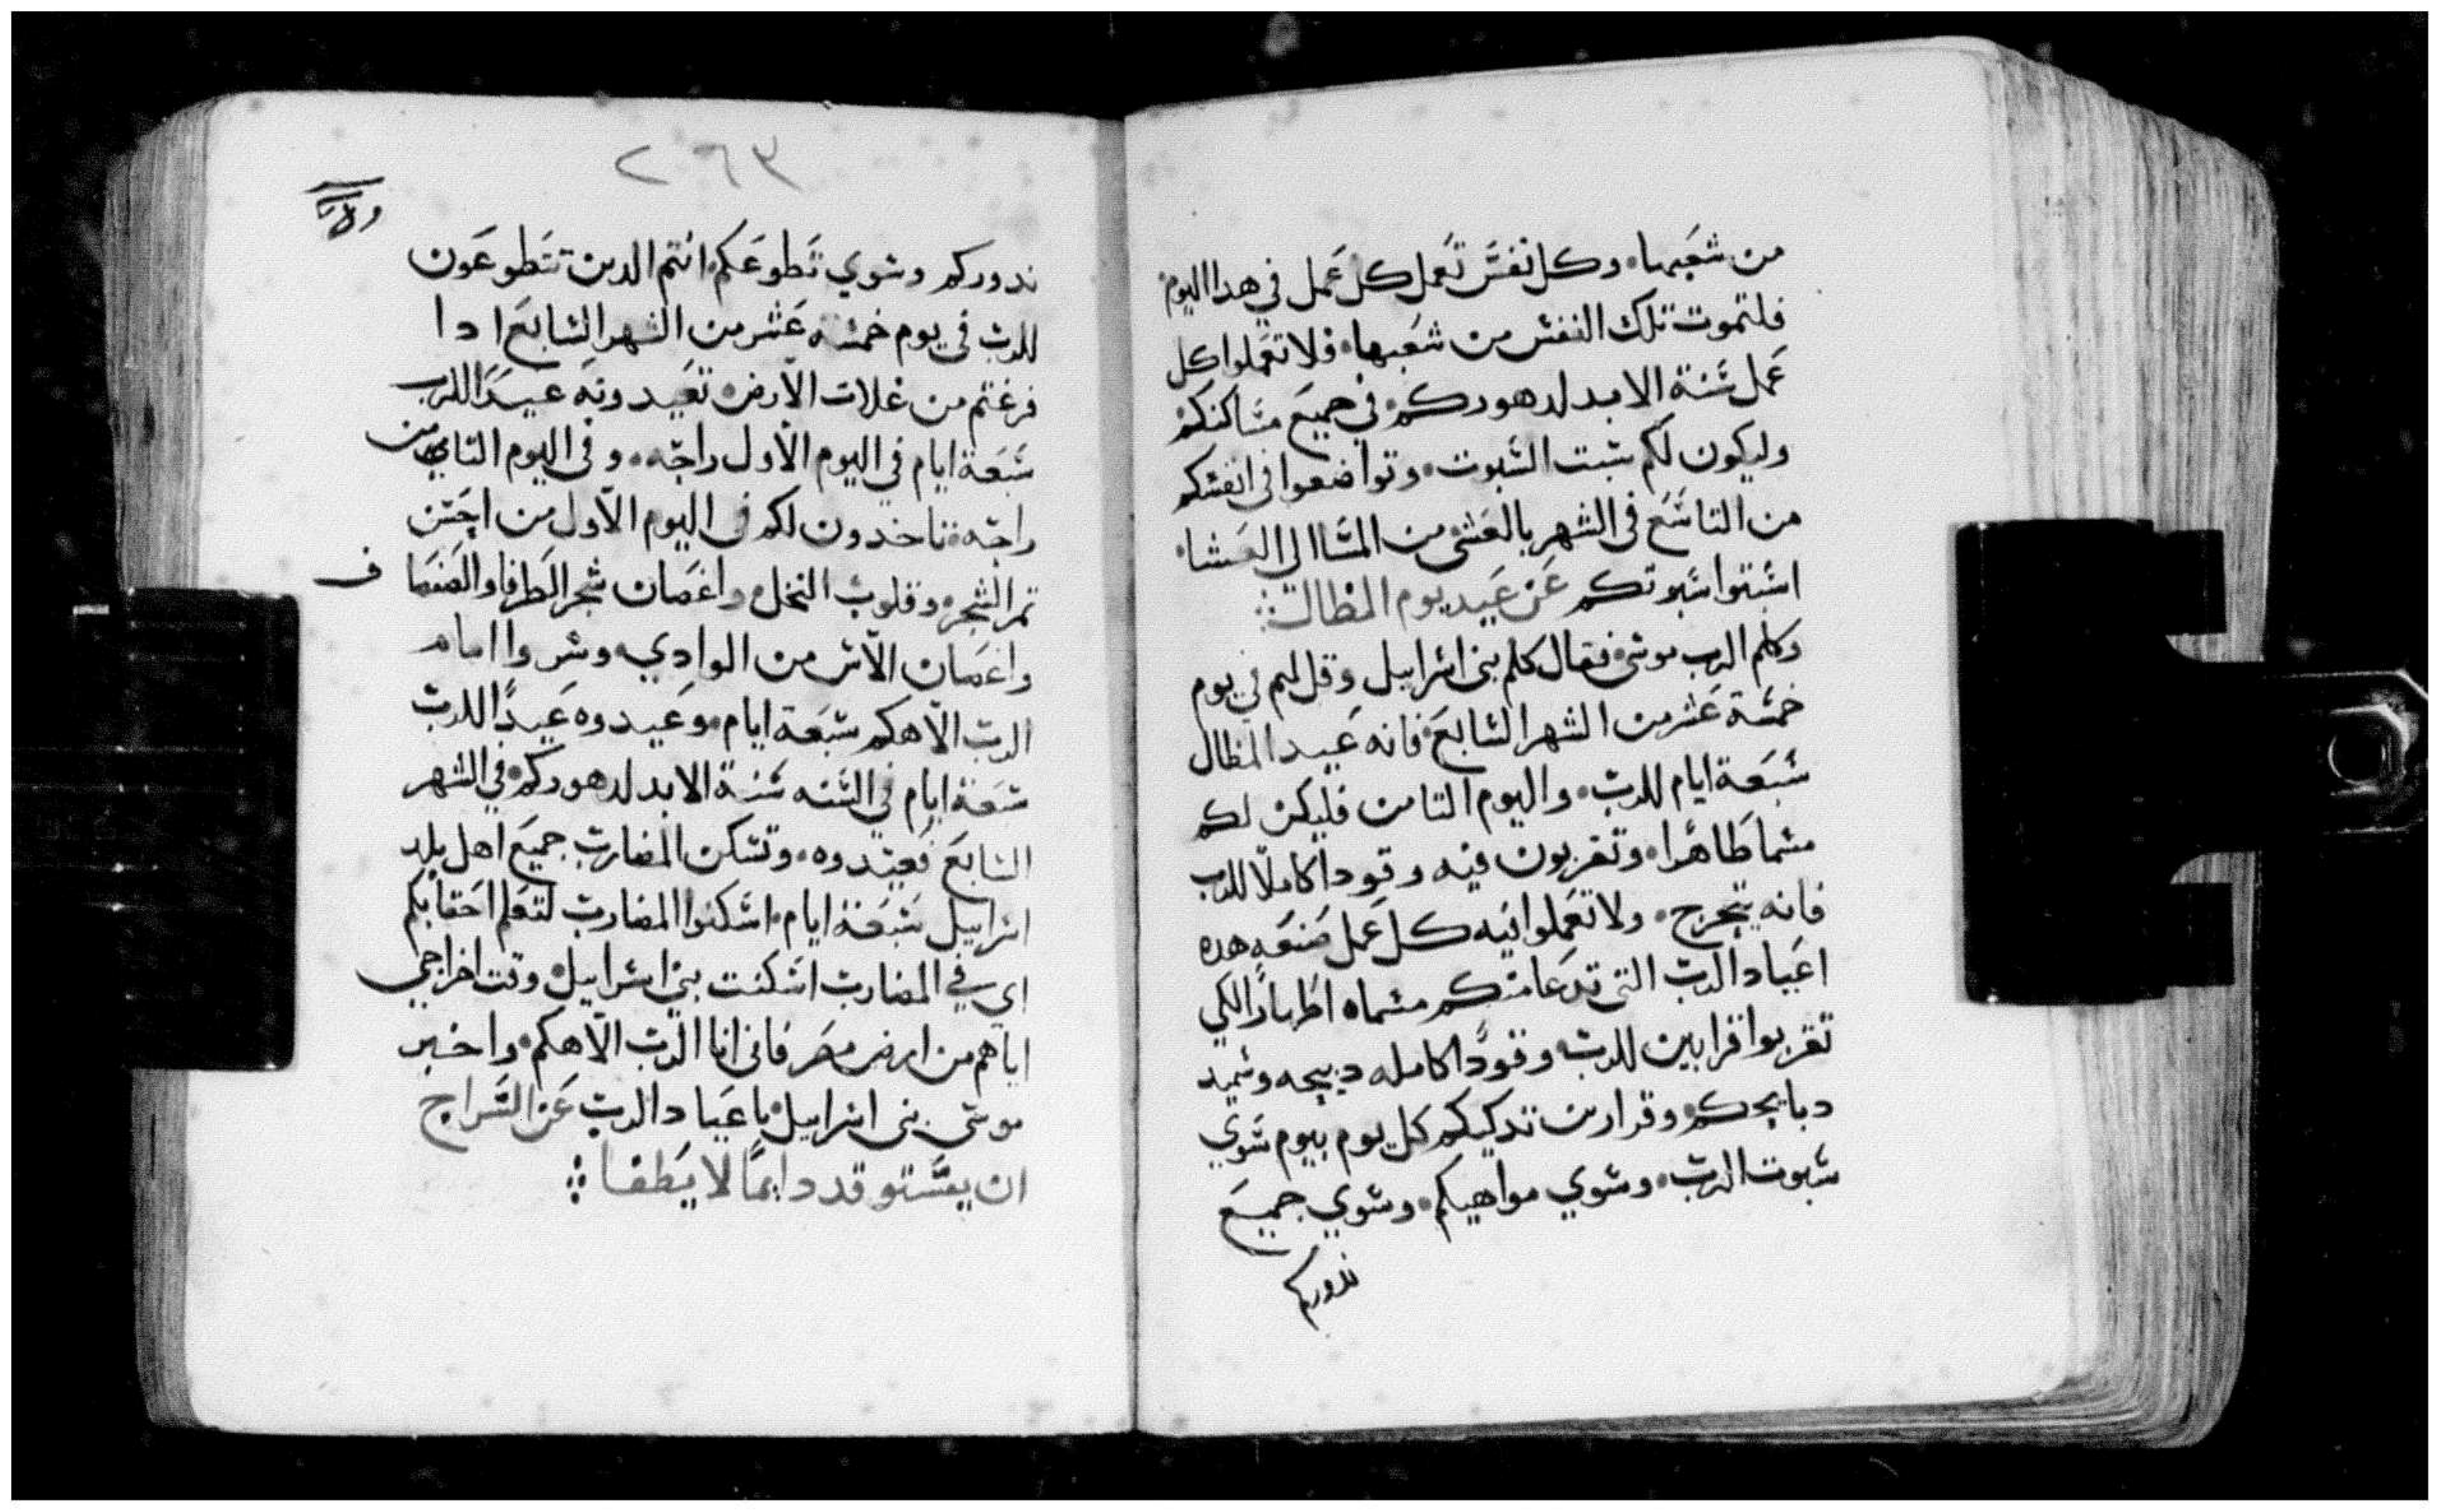 من شعبها۰ وكل نفس تعمل كل عمل في هدا اليوم
فلتموت تلك النفس من شعبها۰ فلا تعملوا كل
عمل سنة الابد لدهوركم۰ في جميع مساكنكم
وليكون لكم سبت السبوت۰ وتواضعوا في انفسكم
من التاسع في الشهر بالعشي من المسا الى العشا۰
اسبتوا سبوتكم عن عيد يوم المظال
وكلم الرب موسى۰ فقال كلم بني اسراييل وقل لهم في يوم
خمسة عشر من الشهر السابع۰ فانه عيد المظال
سبعة ايام للرب۰ واليوم التامن فليكن لكم
مسما طاهرا۰ وتقربون فيه وقودا كاملا للرب
فانه يتحرج۰ ولا تعملوا فيه كل عمل صنعه هده
اعياد الرب التي تدعا منكم مسماه اطهارا لكي
تقربوا قرابين للرب وقودا كامله دبيحه وسميد
دبايحكم۰ وقرابين تدكيكم كل يوم بيوم سوي
سبوت الرب۰ وسوي مواهبكم۰ وسوي جميع
ندوركم
٢٦٣
ندوركم وسوي تطوعكم۰ انتم الدين تتطوعون
للرب في يوم خمسة عشر من الشهر السابع ادا
فرغتم من غلات الارض۰ تعيدونه عيدا للرب
سبعة ايام في اليوم الاول راحه۰ وفي اليوم التامن
راحه۰ تاخدون لكم في اليوم الاول من احسن
تمر الشجره وقلوب النخل واغصان شجر الطرفا والصفصاف
واغصان الآس من الوادي۰ وسروا امام
الرب الاهكم سبعة ايام۰ وعيدوه عيدا للرب
سبعة ايام في السنه سنة الابد لدهوركم۰ في الشهر
السابع فعيدوه۰ وتسكن المضارب جميع اهل بلد
اسراييل سبعة ايام۰ اسكنوا المضارب لتعلم احقابكم
اي في المضارب اسكنت بني اسراييل۰ وقت اخراجي
اياهم من ارض مصر فاني انا الرب الاهكم۰ واخبر
موسى بني اسراييل۰ باعياد الرب عن السراج
ان يستوقد دايما لا يطفا